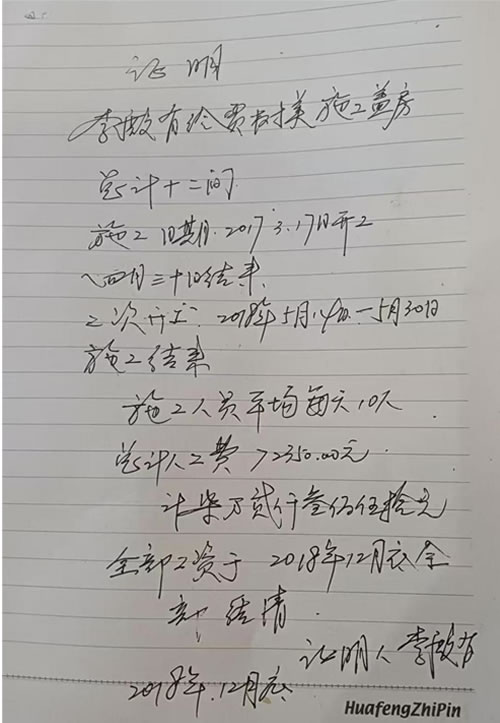 证明
李散有给贾树美施工盖房
总计十二间
施工日期.2017.3.17日开工
~四月三十日结束.
二次开工:2018年5月14日-5月30日
施工结束
施工人员平均每天10人.
总计人工费72350.00元.
计柒万贰仟叁佰伍拾元
全部工资于2018年12月底全
部结清.
证明人李散有
2018年.12月底
HuafengZhiPin